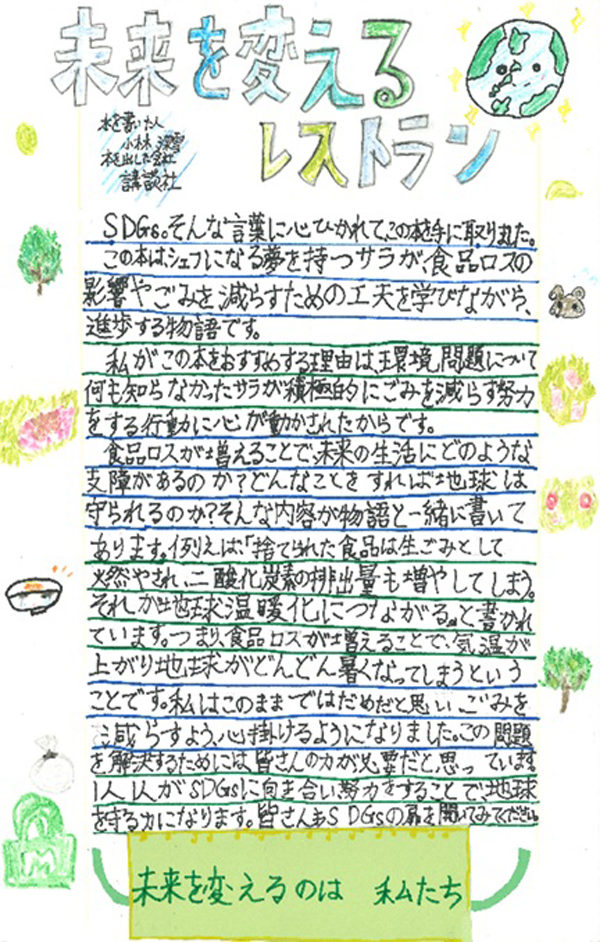 未来を変える
レストラン
本を書いた人
小林 深雪
本を出した会社
講談社
SDGs。そんな言葉に心ひかれて、この本を手に取りました。
この本はシェフになる夢を持つサラが、食品ロスの
影響やごみを減らすための工夫を学びながら、
進歩する物語です。
私がこの本をおすすめする理由は、環境問題について
何も知らなかったサラが積極的にごみを減らす努力
をする行動に心が動かされたからです。
食品ロスが増えることで、未来の生活にどのような
支障があるのか?どんなことをすれば地球は
守られるのか?そんな内容が物語と一緒に書いて
あります。例えば、「捨てられた食品は生ごみとして
燃やされ、二酸化炭素の排出量も増やしてしまう。
それが地球温暖化につながる。」と書かれ
ています。つまり、食品ロスが増えることで、気温が
上がり地球がどんどん暑くなってしまうという
ことです。私はこのままではだめだと思い、ごみを
減らすよう、心掛けるようになりました。この問題
を解決するためには、皆さんの力が必要だと思っています。
1人1人がSDGsに向き合い努力をすることで地球
を守る力になります。皆さんもSDGsの扉を開いてみてください。
未来を変えるのは 私たち